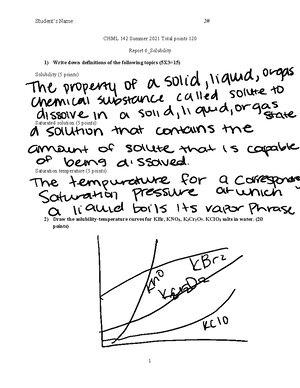 Student's Name
CHML 142 Summer 2021 Total points 120
Report 6_Solubility
1) Write down definitions of the following topics (5X3=15)
Solubility (5 points)
The property of a solid, liquid, or gas
chemical substance called solute to
dissolve in a solid, liquid, or gas
state
Saturated solution (5 points)
a solution that contains the
amount of solute that is capable
of being dissolved.
Saturation temperature (5 points)
The tempurature for a corresponding
Saturation pressure at which
a liquid boils its vapor phrase
2) Draw the solubility-temperature curves for KBr, KNO₃, K₂Cr₂O₇, KClO₃ salts in water. (20
points)
KNO
KBr2
KClO
1